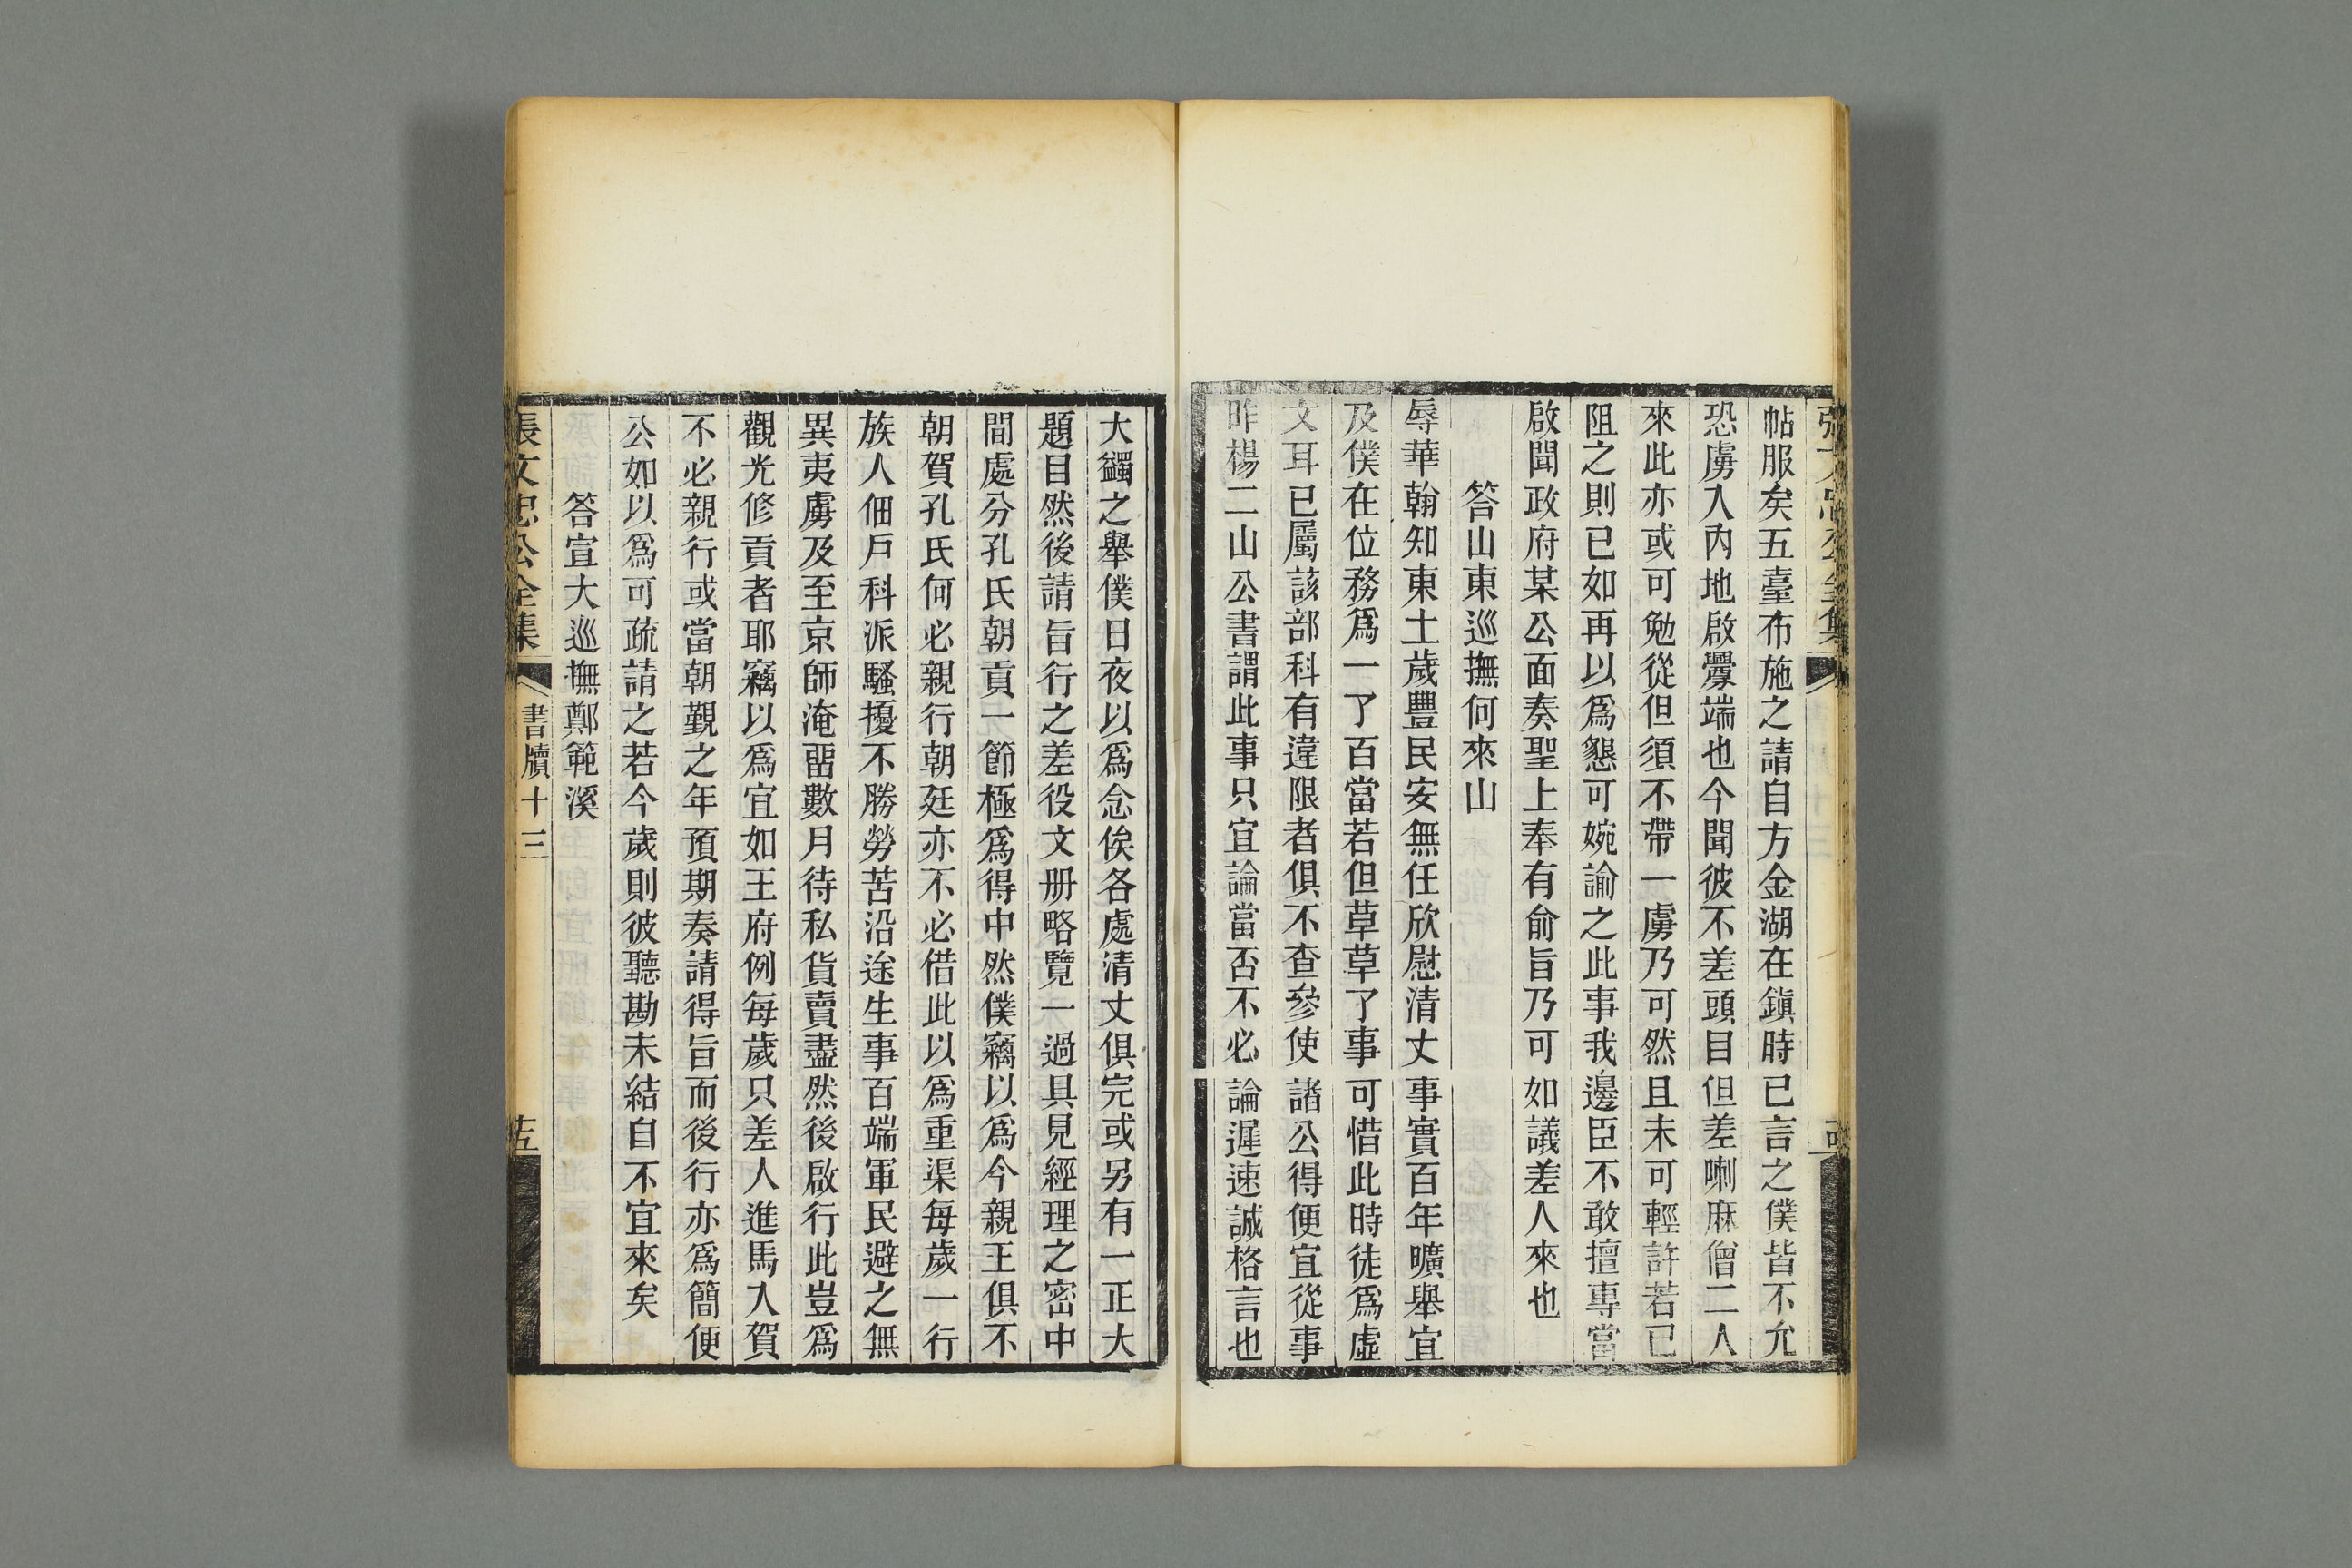 帖服矣五臺布施之請自方金湖在鎮時已言之僕皆不允
恐虜入內地啟釁端也今聞彼不差頭目但差喇麻僧二人
來此亦或可勉從但須不帶一虜乃可然且未可輕許若已
阻之則已如再以爲懇可婉諭之此事我邊臣不敢擅專當
啟聞政府某公面奏聖上奉有俞旨乃可如議差人來也
答山東巡撫何來山
辱華翰知東土歲豐民安無任欣慰清丈事實百年曠舉宜
及僕在位務爲一了百當若但草草了事可惜此時徒爲虛
文耳已屬該部科有違限者俱不查參使諸公得便宜從事
昨楊二山公書謂此事只宜論當否不必論遲速誠格言也
大蠲之舉僕日夜以爲念俟各處清丈俱完或另有一正大
題目然後請旨行之差役文册略覽一過具見經理之密中
間處分孔氏朝貢一節極爲得中然僕竊以爲今親王俱不
朝賀孔氏何必親行朝廷亦不必借此以爲重渠每歲一行
族人佃戶科派騷擾不勝勞苦沿途生事百端軍民避之無
異夷虜及至京師淹畱數月待私貨賣盡然後啟行此豈爲
觀光修貢者耶竊以爲宜如王府例每歲只差人進馬入賀
不必親行或當朝覲之年預期奏請得旨而後行亦爲簡便
公如以爲可疏請之若今歲則彼聽勘未結自不宜來矣
答宣大巡撫鄭範溪
張文忠公全集
書牘十三